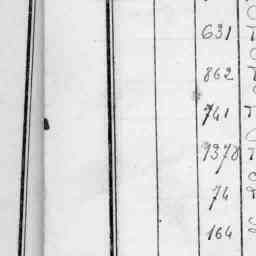 631
862
741
9378
74
164